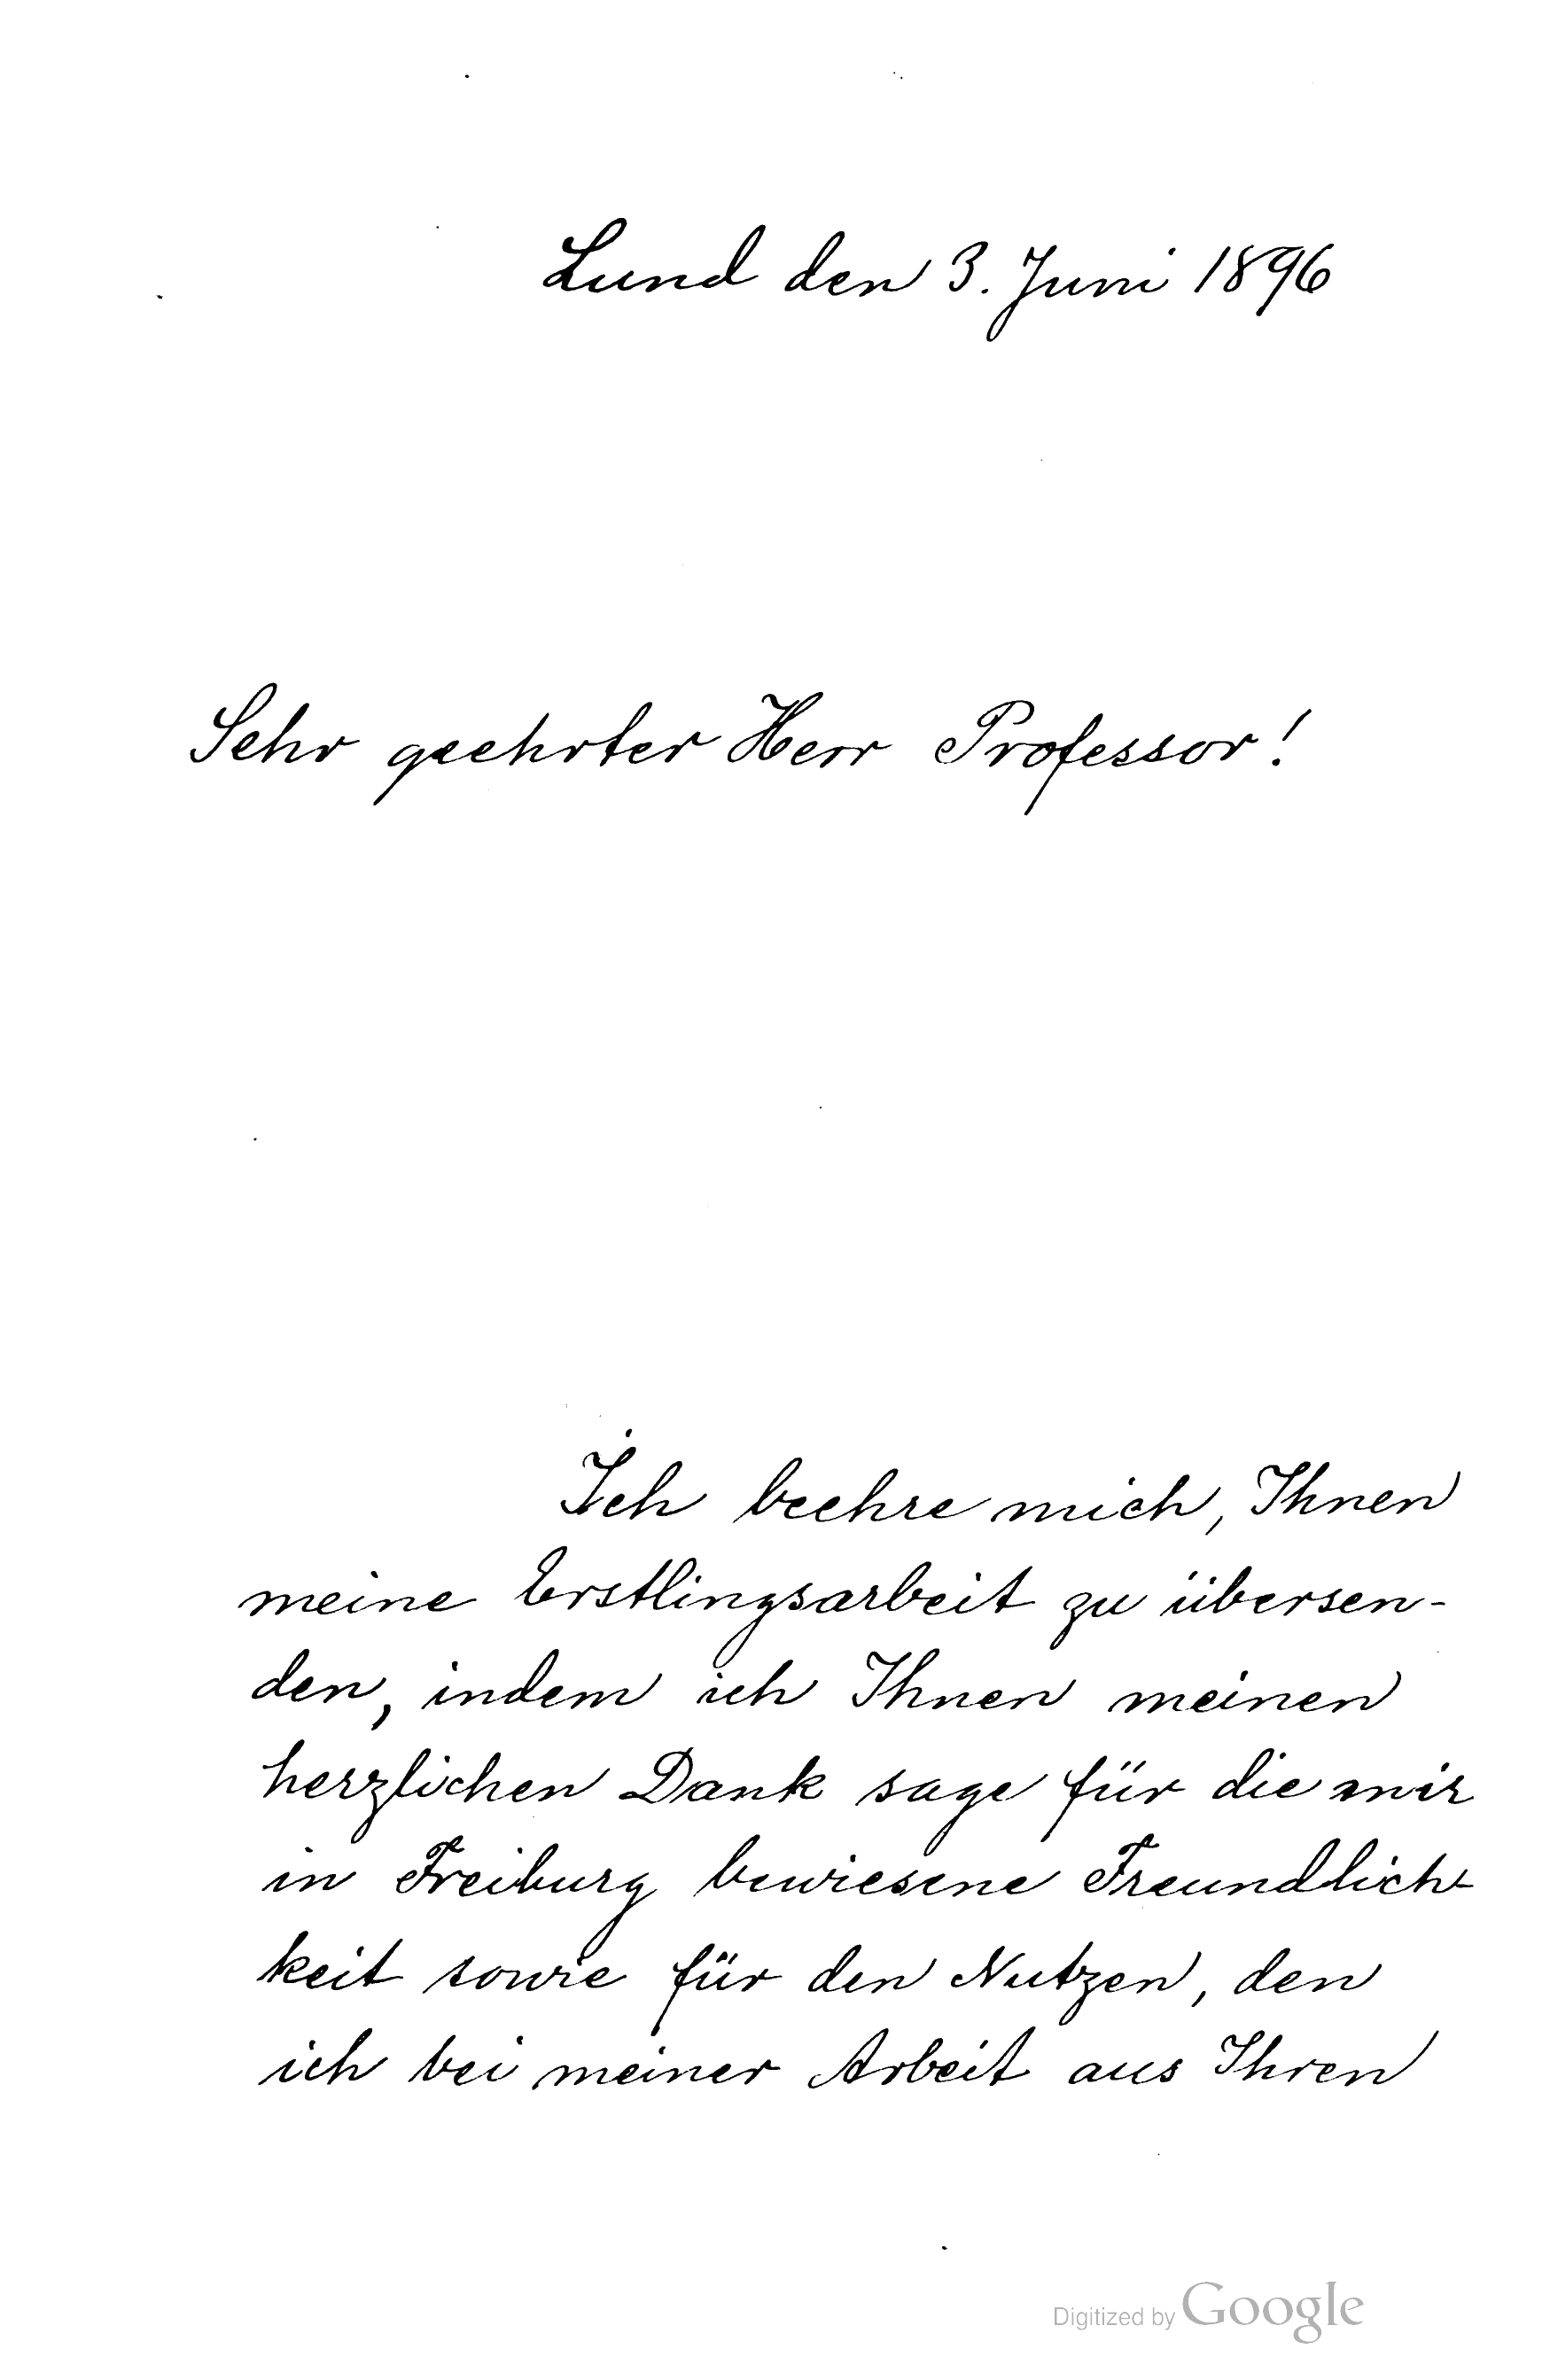 Lund den 3. Juni 1896
Sehr geehrter Herr Professor!
Ich beehre mich, Ihnen
meine Erstlingsarbeit zu übersen-
den, indem ich Ihnen meinen
herzlichen Dank sage für die mir
in Freiburg bewiesene Freundlich-
keit sowie für den Nutzen, den
ich bei meiner Arbeit aus Ihren
Digitized by Google